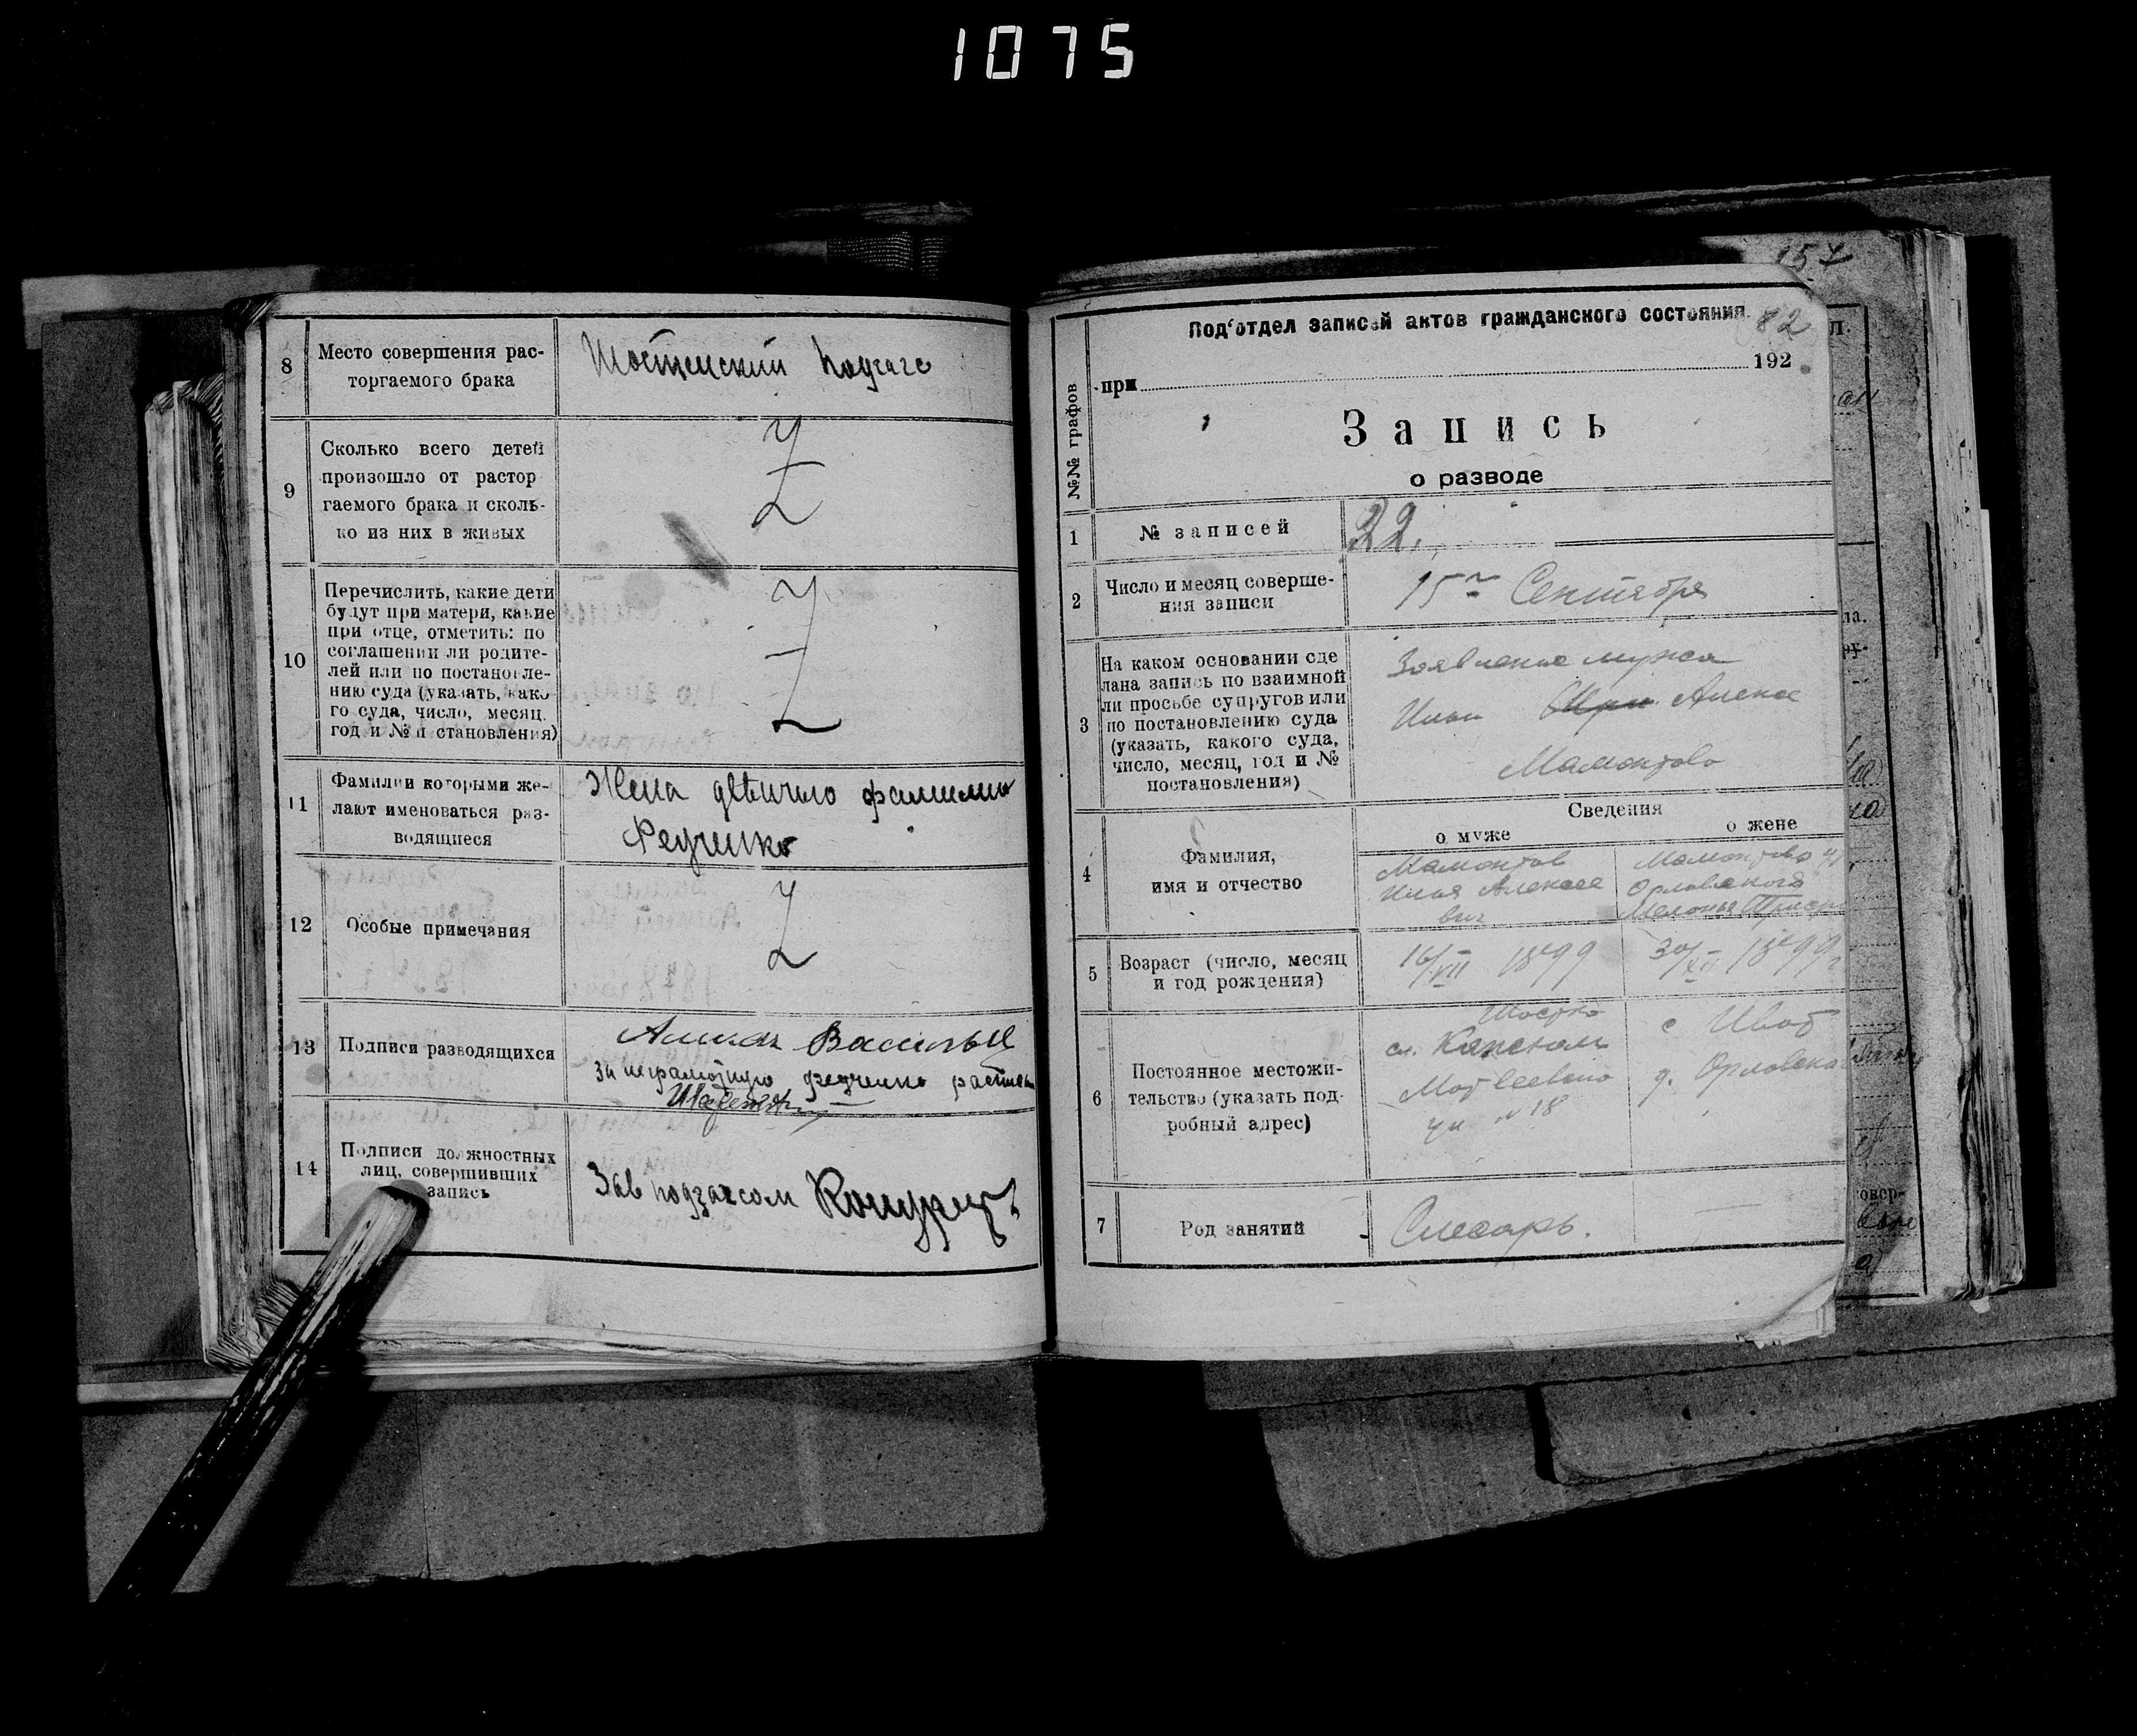 1075
8
Место совершения рас-
торгаемого брака
Шостенский подзагс
9
Сколько всего детей
произошло от растор
гаемого брака и сколь-
ко из них в живых
10
Перечислить, какие дети
будут при матери, какие
при отце, отметить: по
соглашении ли родите-
лей или по постановле-
нию суда (указать, како-
го суда, число, месяц.
год и № п становления)
11
Фамилии которыми же-
лают именоваться раз-
водящиеся
Жена девичью фамилию
Федченко
12
Особые примечания
13
Подписи разводящихся
за неграмотную Федченко
14
Подписи должностных
лиц, совершивших
запись
Зав подзагсом
157
82
Под'отдел записей актов гражданского состояния
при 192
№№ графов
Запись
о разводе
1
№ записей
22.
2
Число и месяц соверше-
ния записи
15го Сентября
3
На каком основании сде
лана запись по взаимной
ли просьбе супругов или
по постановлению суда
(указать, какого суда,
число, месяц, год и №
постановления)
Заявление мужа
Мамонтова
Сведения
о муже
о жене
4
Фамилия,
имя и отчество
Мамонтов
Илья Алексее
вич
Мамонтова
Орловская
5
Возраст (число, месяц
и год рождения)
16/VII 1899
30/XII 1899 г
6
Постоянное местожи-
тельство (указать под-
робный адрес)
Шостка
ул № 18
с Ивот
7
Род занятий
Слесарь.